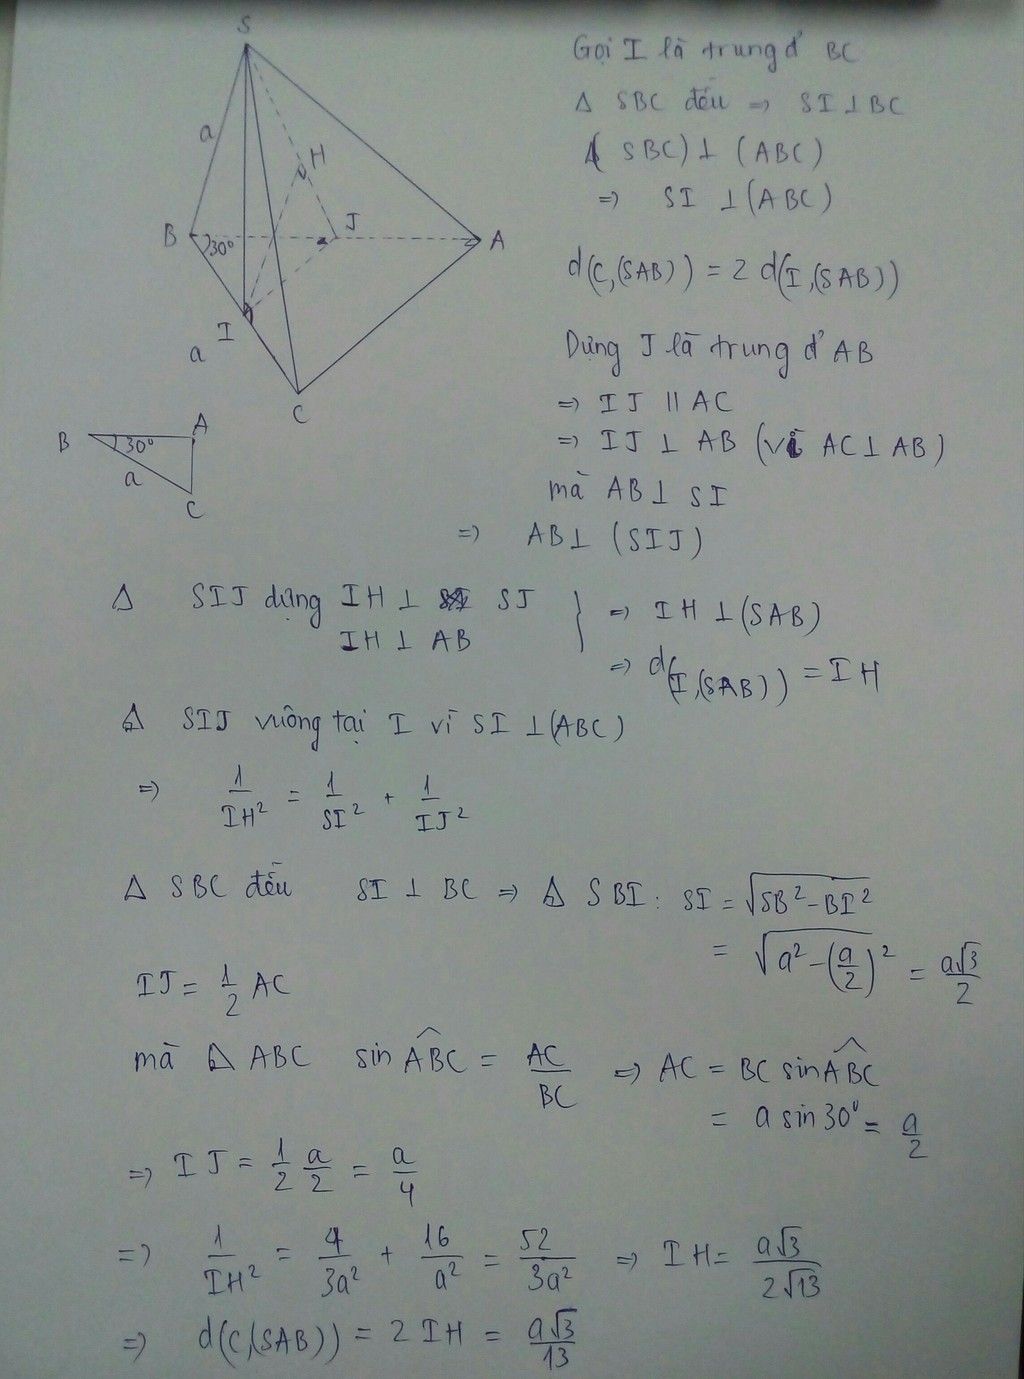 S
a
H
B
30°
J
A
I
a
C
B
30°
A
a
C
Gọi I là trung đ' BC
Δ SBC đều => SI ⊥ BC
(SBC) ⊥ (ABC)
=> SI ⊥ (ABC)
d(C,(SAB)) = 2 d(I,(SAB))
Dựng J là trung đ' AB
=> IJ || AC
=> IJ ⊥ AB (vì AC ⊥ AB)
mà AB ⊥ SI
=> AB ⊥ (SIJ)
Δ SIJ dựng IH ⊥ SJ } => IH ⊥ (SAB)
IH ⊥ AB
=> d(I,(SAB)) = IH
Δ SIJ vuông tại I vì SI ⊥ (ABC)
=> 1/IH² = 1/SI² + 1/IJ²
Δ SBC đều SI ⊥ BC => Δ SBI: SI = √(SB² - BI²)
= √(a² - (a/2)²) = a√3/2
IJ = 1/2 AC
mà Δ ABC sin ABC = AC/BC => AC = BC sin ABC
= a sin 30° = a/2
=> IJ = 1/2 a/2 = a/4
=> 1/IH² = 4/3a² + 16/a² = 52/3a² => IH = a√3/2√13
=> d(C,(SAB)) = 2 IH = a√3/13